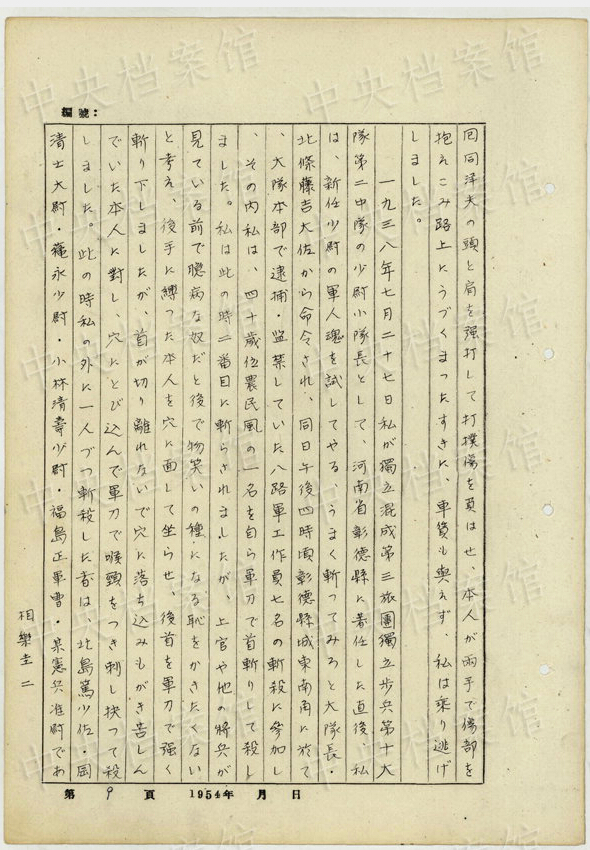 編號：
回同洋夫の頭と肩を强打して打撲傷を負はせ、本人が両手で傷部を
抱えこみ路上にうづくまつたすきに、車賃も與えず、私は乗り逃げ
しました。
一九三八年七月二十七日私が獨立混成第三旅團獨立步兵第十大
隊第二中隊の少尉小隊長として、河南省彰德縣に着任した直後、私
は、新任少尉の軍人魂を試してやる、うまく斬つてみろと大隊長・
北條藤吉大佐から命令され、同日午後四時頃彰德縣城東南角に於て
、大隊本部で逮捕・監禁していた八路軍工作員七名の斬殺に参加し
、その内私は、四十歳位農民風の一名を自ら軍刀で首斬りして殺し
ました。私は此の時二番目に斬らされましたが、上官や他の將兵が
見ている前で臆病な奴だと後で物笑いの種になる恥をかきたくない
と考え、後手に縛つた本人を穴に面して坐らせ、後首を軍刀で强く
斬り下しましたが、首が切り離れないで穴に落ち込みもがき苦しん
でいた本人に對し、穴にとび込んで軍刀で喉頭をつき刺し抉つて殺
しました。此の時私の外に一人づつ斬殺した者は、北島篤少佐・岡
清士大尉・永少尉・小林清壽少尉・福島正軍曹・某憲兵准尉であ
相樂圭二
第 9 頁 1954年 月 日
中央档案馆